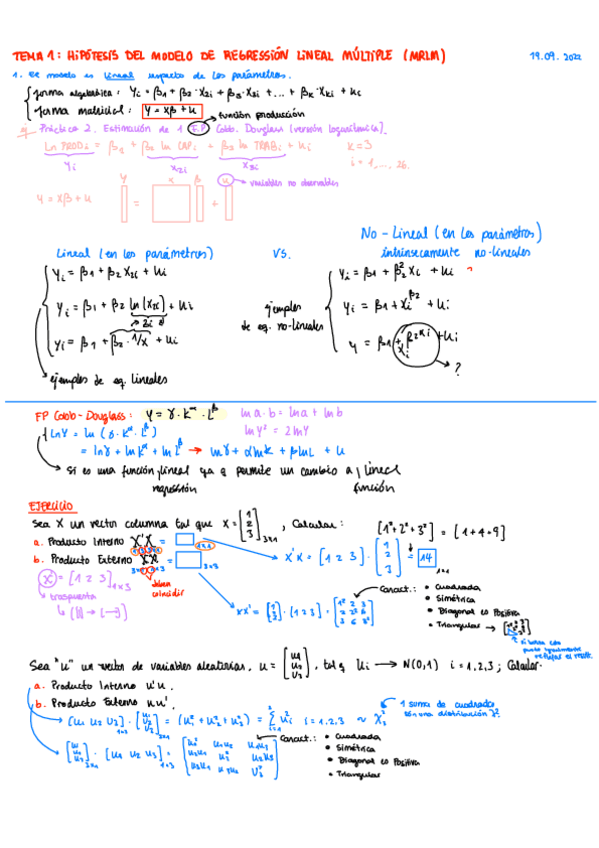 TEMA 1: HIPÓTESIS DEL MODELO DE REGRESSIÓN LINEAL MÚLTIPLE (MRLM) 19.09.2022
1. El modelo es lineal respecto de los parámetros.
forma algebraica: Yi = β1 + β2·X2i + β3·X3i + ... + βk·Xki + ui
forma matricial: Y = Xβ + u
función producción
ej Práctica 2. Estimación de 1 F.P Cobb-Douglass (versión logarítmica).
Ln PRODi = β1 + β2 ln CAPi + β3 ln TRABi + ui K=3
Yi X2i X3i i = 1, ..., 26.
Y X β u → variables no observables
Y = Xβ + u = +
No-Lineal (en los parámetros)
Lineal (en los parámetros) VS. intrínsecamente no-lineales
Yi = β1 + β2 X2i + ui
Yi = β1 + β2² Xi + ui
Yi = β1 + β2 ln(X2i) + ui
ejemplos de eq. no-lineales
Yi = β1 + Xi^β2 + ui
Yi = β1 + β2·1/X + ui
?
ejemplos de eq. lineales
FP Cobb-Douglass: Y = γ·K^α·L^β ln a·b = ln a + ln b
ln Y = ln (γ·K^α·L^β) ln y² = 2 ln y
= ln γ + ln K^α + ln L^β → ln γ + α ln K + β ln L + u
Si es una función lineal ya q permite un cambio a 1 lineal
regresión función
EJERCICIO
Sea X un vector columna tal que X = [1 2 3] 3x1, Calcular: [1²+2²+3²] = [1+4+9]
a. Producto Interno X'X = 1x1
X'X = [1 2 3] · [1 2 3] = 14 1x1
b. Producto Externo XX' = 3x3
deben coincidir
X' = [1 2 3] 1x3
traspuesta
XX' = [1 2 3] · [1 2 3] =
Caract.: • Cuadrada
• Simétrica
• Diagonal es Positiva
• Triangular
Sea "u" un vector de variables aleatorias, u = [u1 u2 u3], tal q ui → N(0,1) i = 1,2,3; Calcular.
a. Producto Interno u'u.
b. Producto Externo uu'.
[u1 u2 u3] · [u1 u2 u3] = (u1² + u2² + u3²) = Σ ui² i = 1,2,3 ~ χ²3
1 suma de cuadrados son una distribución χ².
[u1 u2 u3] 3x1 · [u1 u2 u3] 1x3 =
Caract.: • Cuadrada
• Simétrica
• Diagonal es Positiva
• Triangular